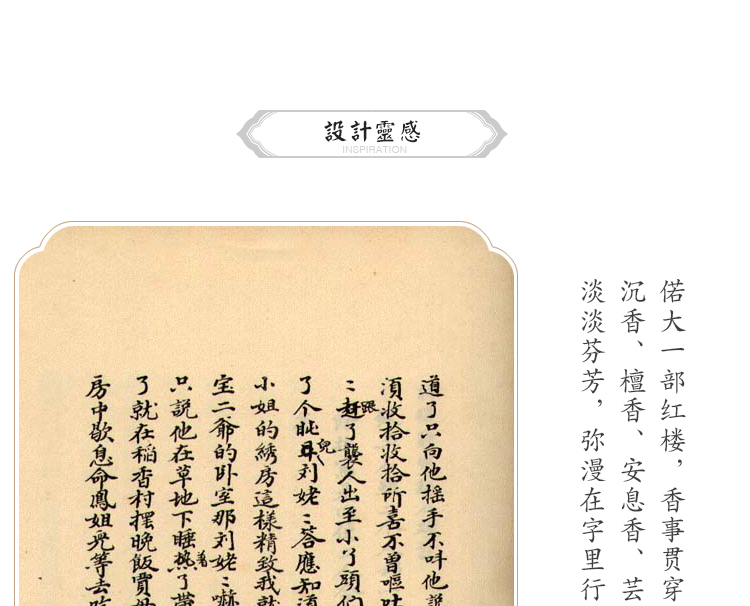 設計靈感
INSPIRATION
偌大一部红楼，香事贯穿
沉香、檀香、安息香、芸
淡淡芬芳，弥漫在字里行
道了只向他摇手不呌他説
湏收拾收拾所喜不曾嘔吐
跟
〻赶了襲人出至小丫頭们
了个盹兒刘姥〻答應知道
小姐的綉房這樣精致我就
宝二爺的卧室那刘姥〻嚇
只説他在草地下睡熟了帶
着
了就在稻香村摆晚飯賈母
房中歇息命鳳姐兒等去吃